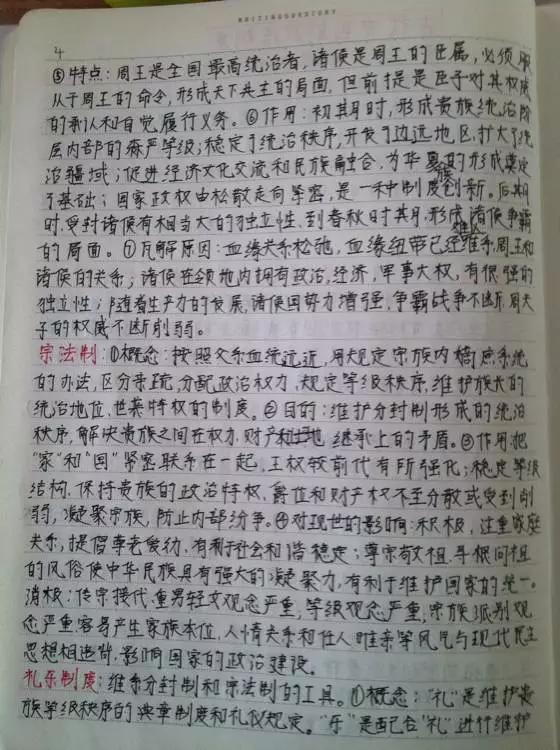 4
⑤特点：周王是全国最高统治者，诸侯是周王的臣属，必须服
从于周王的命令，形成天下共主的局面，但前提是臣子对其权威
的承认和自觉履行义务。⑥作用：初期时，形成贵族统治阶
层内部的森严等级；稳定了统治秩序，开发了边远地区，扩大了统
治疆域；促进经济文化交流和民族融合，为华夏族的形成奠定
了基础；国家政权由松散走向紧密，是一种制度创新。后期
时，受封诸侯有相当大的独立性，到春秋时期，形成诸侯争霸
的局面。⑦瓦解原因：血缘关系松弛，血缘纽带已经难以维系周王和
诸侯的关系；诸侯在领地内拥有政治，经济，军事大权，有很强的
独立性；随着生产力的发展，诸侯国势力增强，争霸战争不断，周天
子的权威不断削弱。
宗法制：①概念：按照父系血统远近，用规定宗族内嫡庶系统
的办法，区分亲疏，分配政治权力，规定等级秩序，维护族长的
统治地位，世袭特权的制度。②目的：维护分封制形成的统治
秩序，解决贵族之间在权力，财产和土地继承上的矛盾。③作用：把
“家”和“国”紧密联系在一起，王权较前代有所强化；稳定等级
结构，保持贵族的政治特权，爵位和财产权不至分散或受到削
弱，凝聚宗族，防止内部纷争。④对现世的影响：积极，注重家庭
关系，提倡尊老爱幼，有利于社会和谐稳定；尊宗敬祖，寻根问祖
的风俗使中华民族具有强大的凝聚力，有利于维护国家的统一。
消极：传宗接代，重男轻女观念严重，等级观念严重，宗族派别观
念严重，容易产生家族本位，人情关系和任人唯亲等风气与现代民主
思想相违背，影响国家的政治建设。
礼乐制度：维系分封制和宗法制的工具。①概念：“礼”是维护贵
族等级秩序的典章制度和礼仪规定。“乐”是配合“礼”进行维护